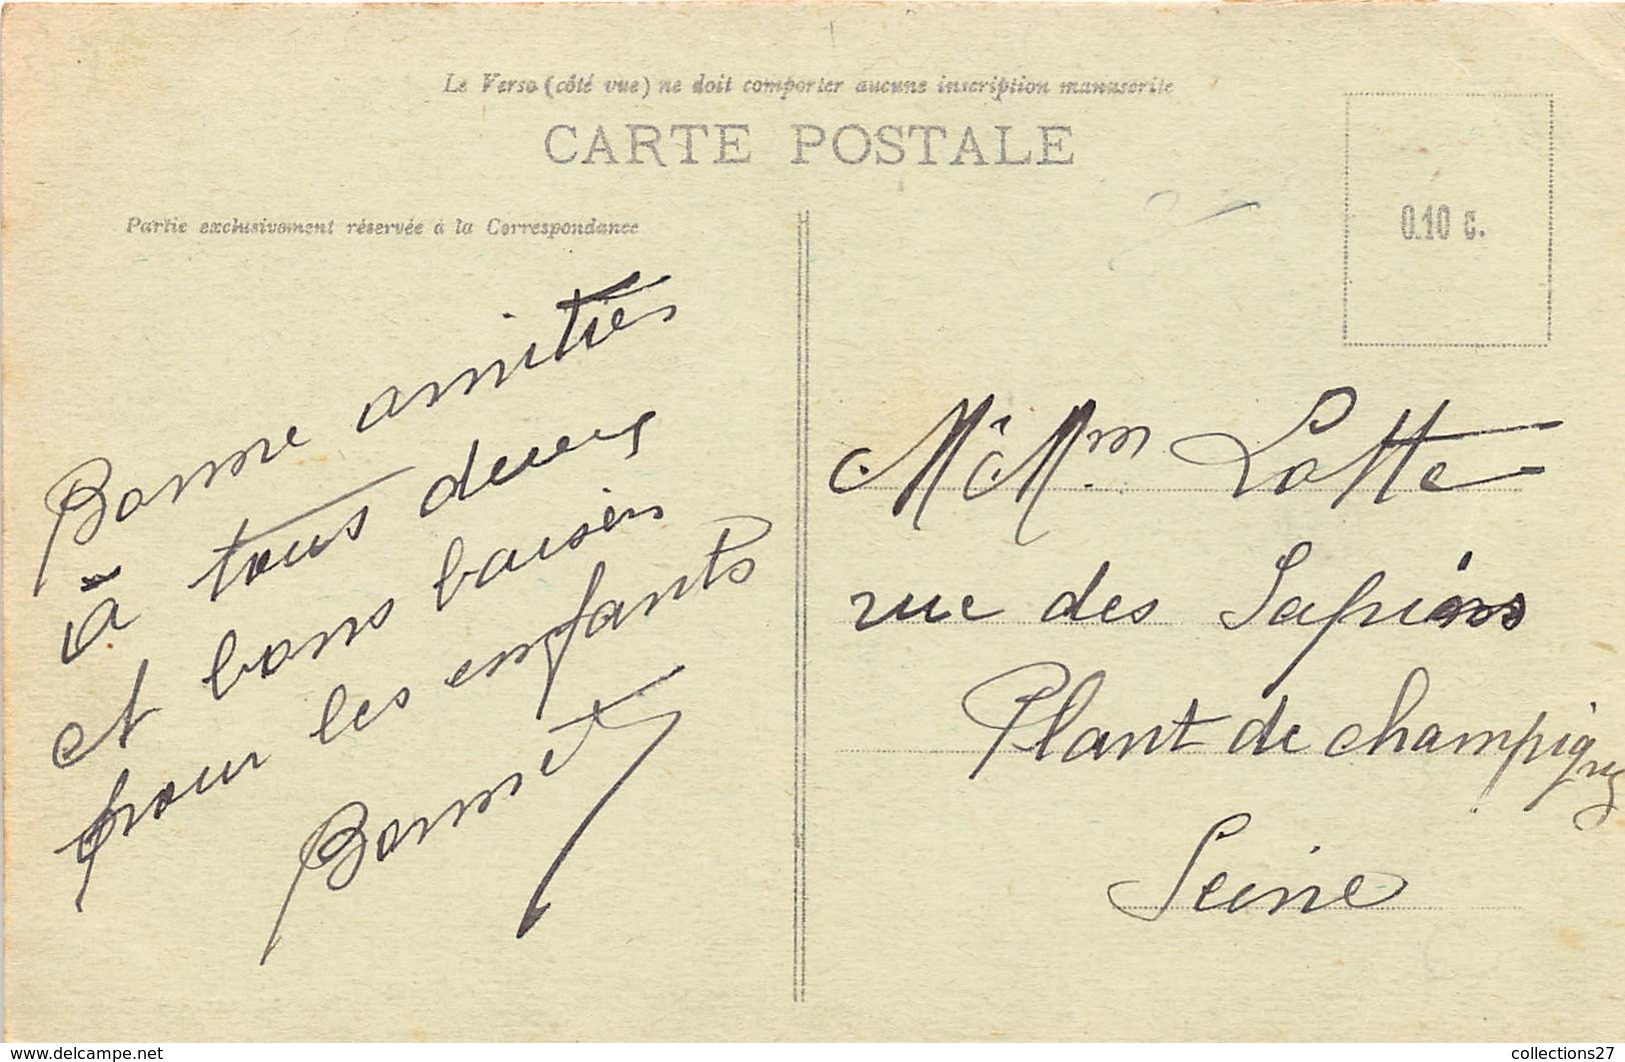 Le Verso (côté vue) ne doit comporter aucune inscription manuscrite
CARTE POSTALE
Partie exclusivement réservée à la Correspondance
0.10 c.
Bonne amitiés
à tous deux
et bons baisers
pour les enfants
Bonnet
Mr Mm Lotte
rue des Sapins
Plant de champigny
Seine
www.delcampe.net
collections27